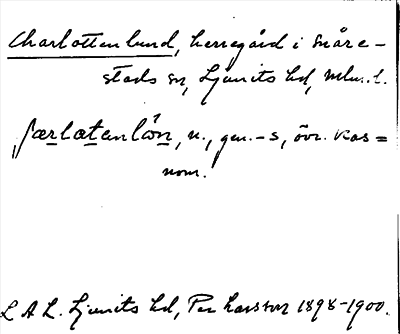 Charlottenlund, herregård i Snåre-
stads sn, Ljunits hd, Mlm. l.
ʃærlætenlön, n., gen. -s, övr. kas =
nom.
L A L. Ljunits hd, Per Larsson 1898-1900.